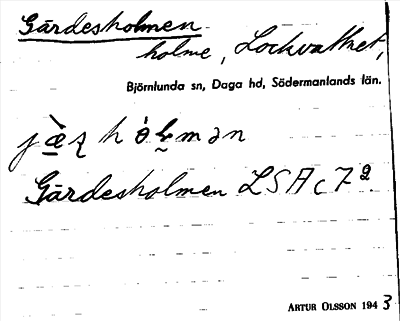 Gärdesholmen
holme, Lockvattnet,
Björnlunda sn, Daga hd, Södermanlands län.
Gärdesholmen LSA c 7
ARTUR OLSSON 1943